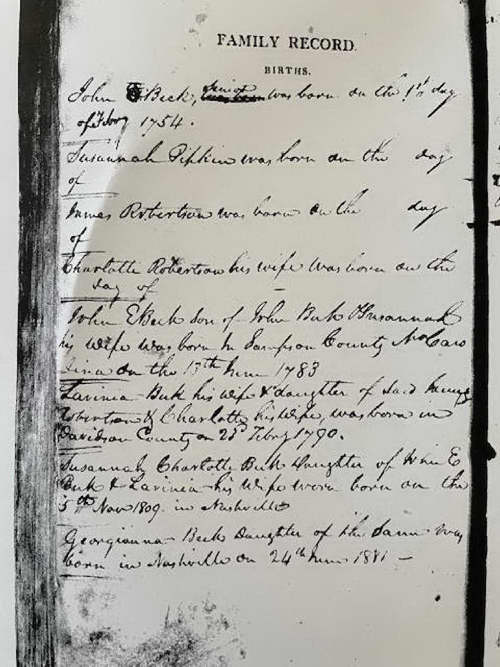 FAMILY RECORD.
BIRTHS.
John Beck, was born on the 1st day
of Feby 1754.
Susannah Pipkin was born on the day
of
James Robertson was born on the day
of
Charlotte Robertson his wife was born on the
day of
John E Beck son of John Beck & Susannah
his wife was born in Sampson County No Caro
lina on the 13th June 1783
Lavinia Beck his wife & daughter of said James
Robertson & Charlotte his wife, was born in
Davidson County on 23d Feby 1790.
Susannah Charlotte Beck Daughter of John E
Beck & Lavinia his wife were born on the
5th Nov 1809 in Nashville
Georgianna Beck Daughter of the same was
born in Nashville on 24th June 1811 —